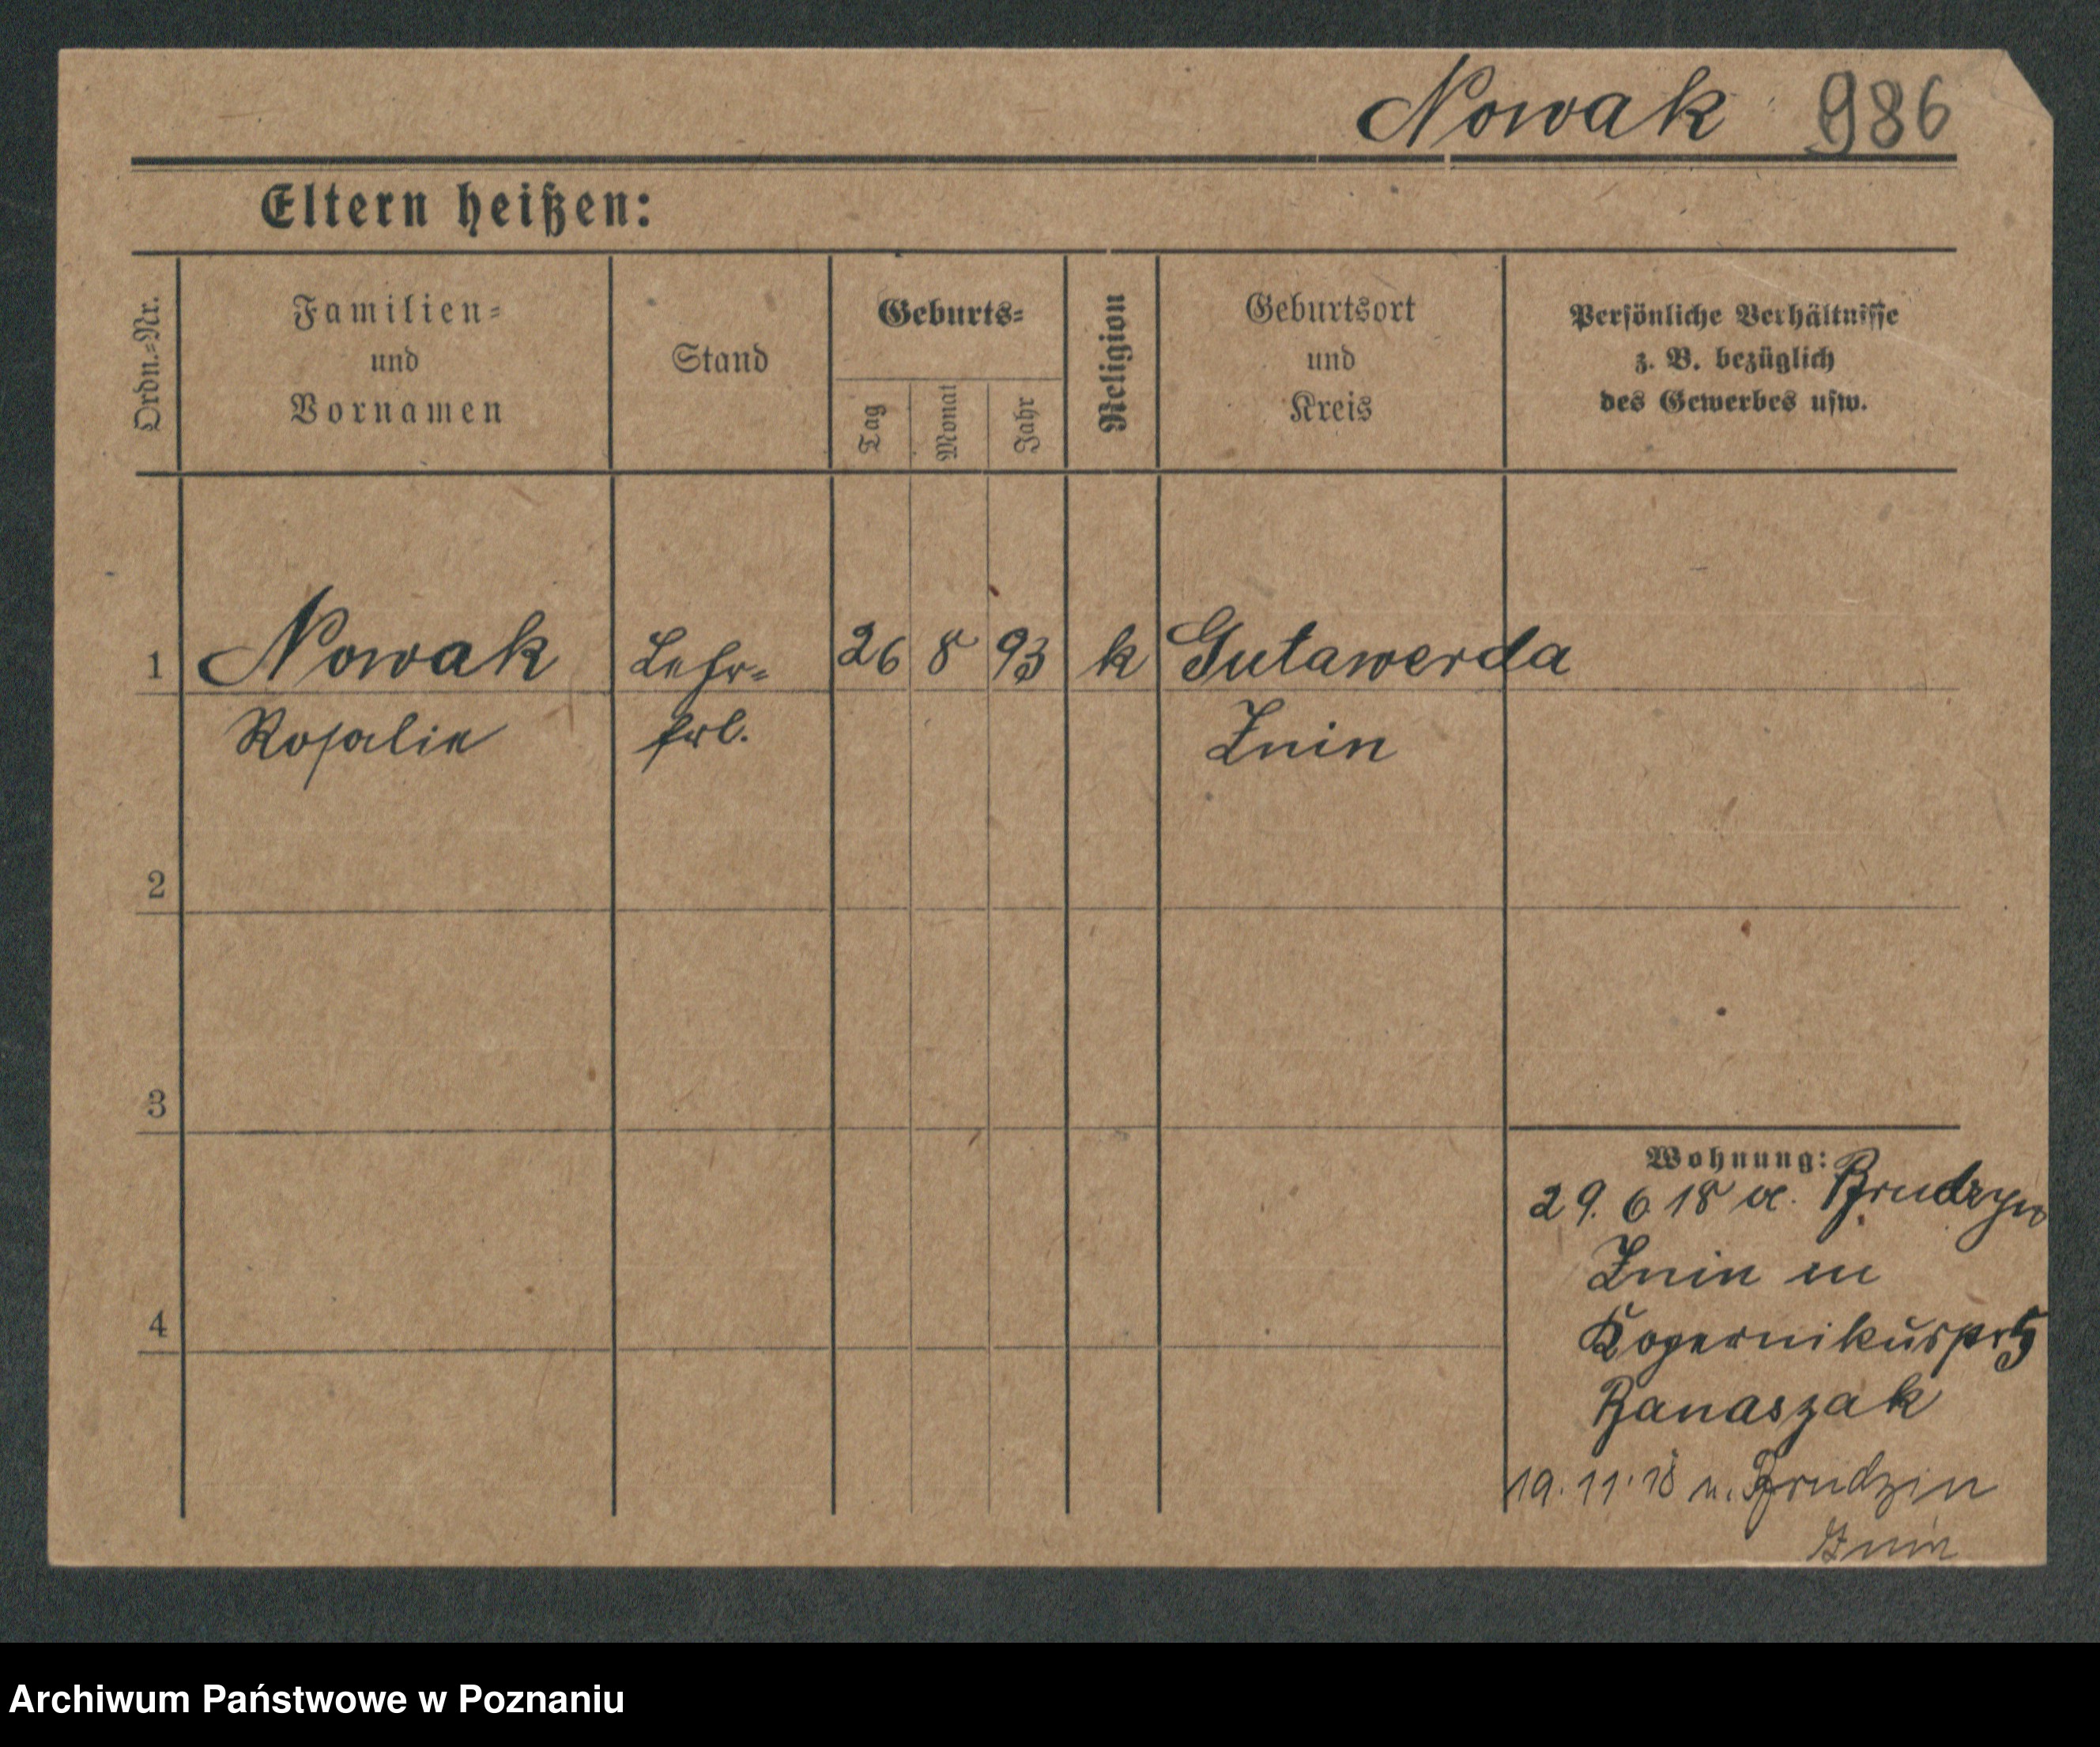 Nowak 986
Eltern heißen:
Ordn.=Nr.
Familien=
und
Vornamen
Stand
Geburts=
Tag
Monat
Jahr
Religion
Geburtsort
und
Kreis
Persönliche Verhältnisse
z. B. bezüglich
des Gewerbes usw.
1 Nowak Lehr= 26 8 93 k Gutawerda
Rosalie frl. Znin
2
3
4
Wohnung:
29. 6 18 a. Brudzyn
Znin in
Banaszak
19. 11. 18 n. Brudzin
Znin
Archiwum Państwowe w Poznaniu